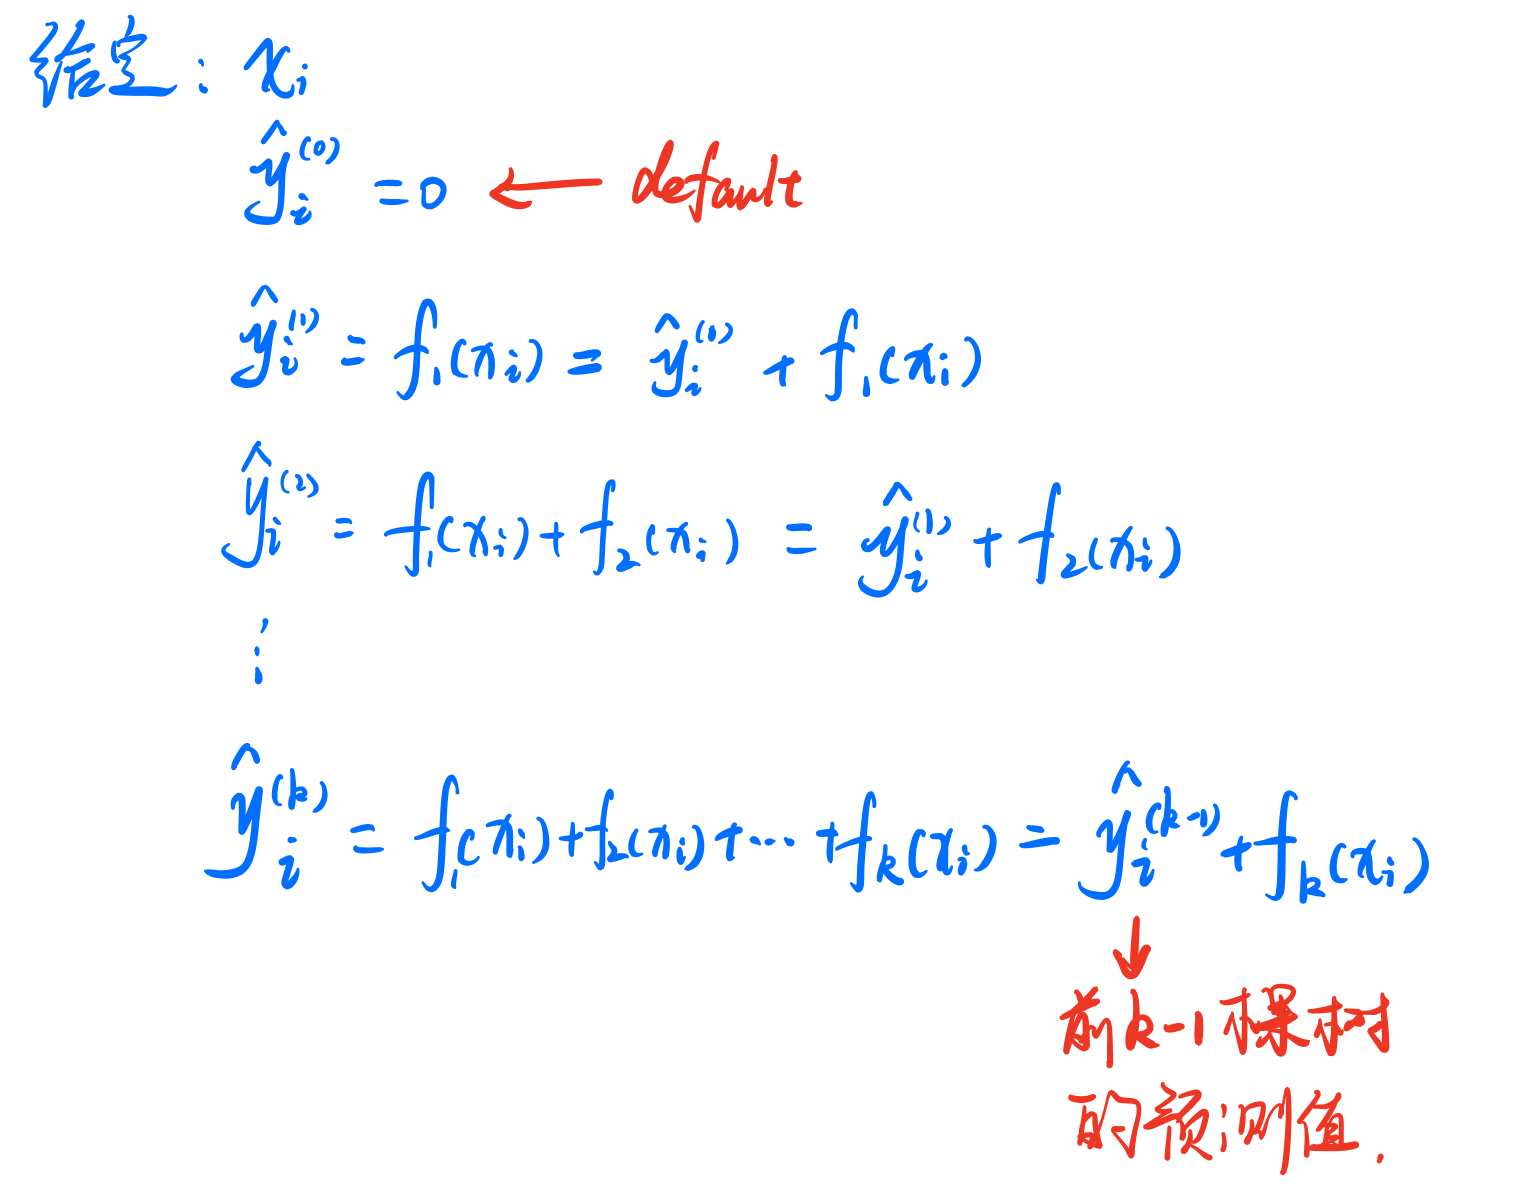 给定: xᵢ
ŷᵢ⁽⁰⁾ = 0 ← default
ŷᵢ⁽¹⁾ = f₁(xᵢ) = ŷᵢ⁽⁰⁾ + f₁(xᵢ)
ŷᵢ⁽²⁾ = f₁(xᵢ) + f₂(xᵢ) = ŷᵢ⁽¹⁾ + f₂(xᵢ)
⋮
ŷᵢ⁽ᵏ⁾ = f₁(xᵢ) + f₂(xᵢ) + ⋯ + fₖ(xᵢ) = ŷᵢ⁽ᵏ⁻¹⁾ + fₖ(xᵢ)
↓
前k-1棵树
的预测值.